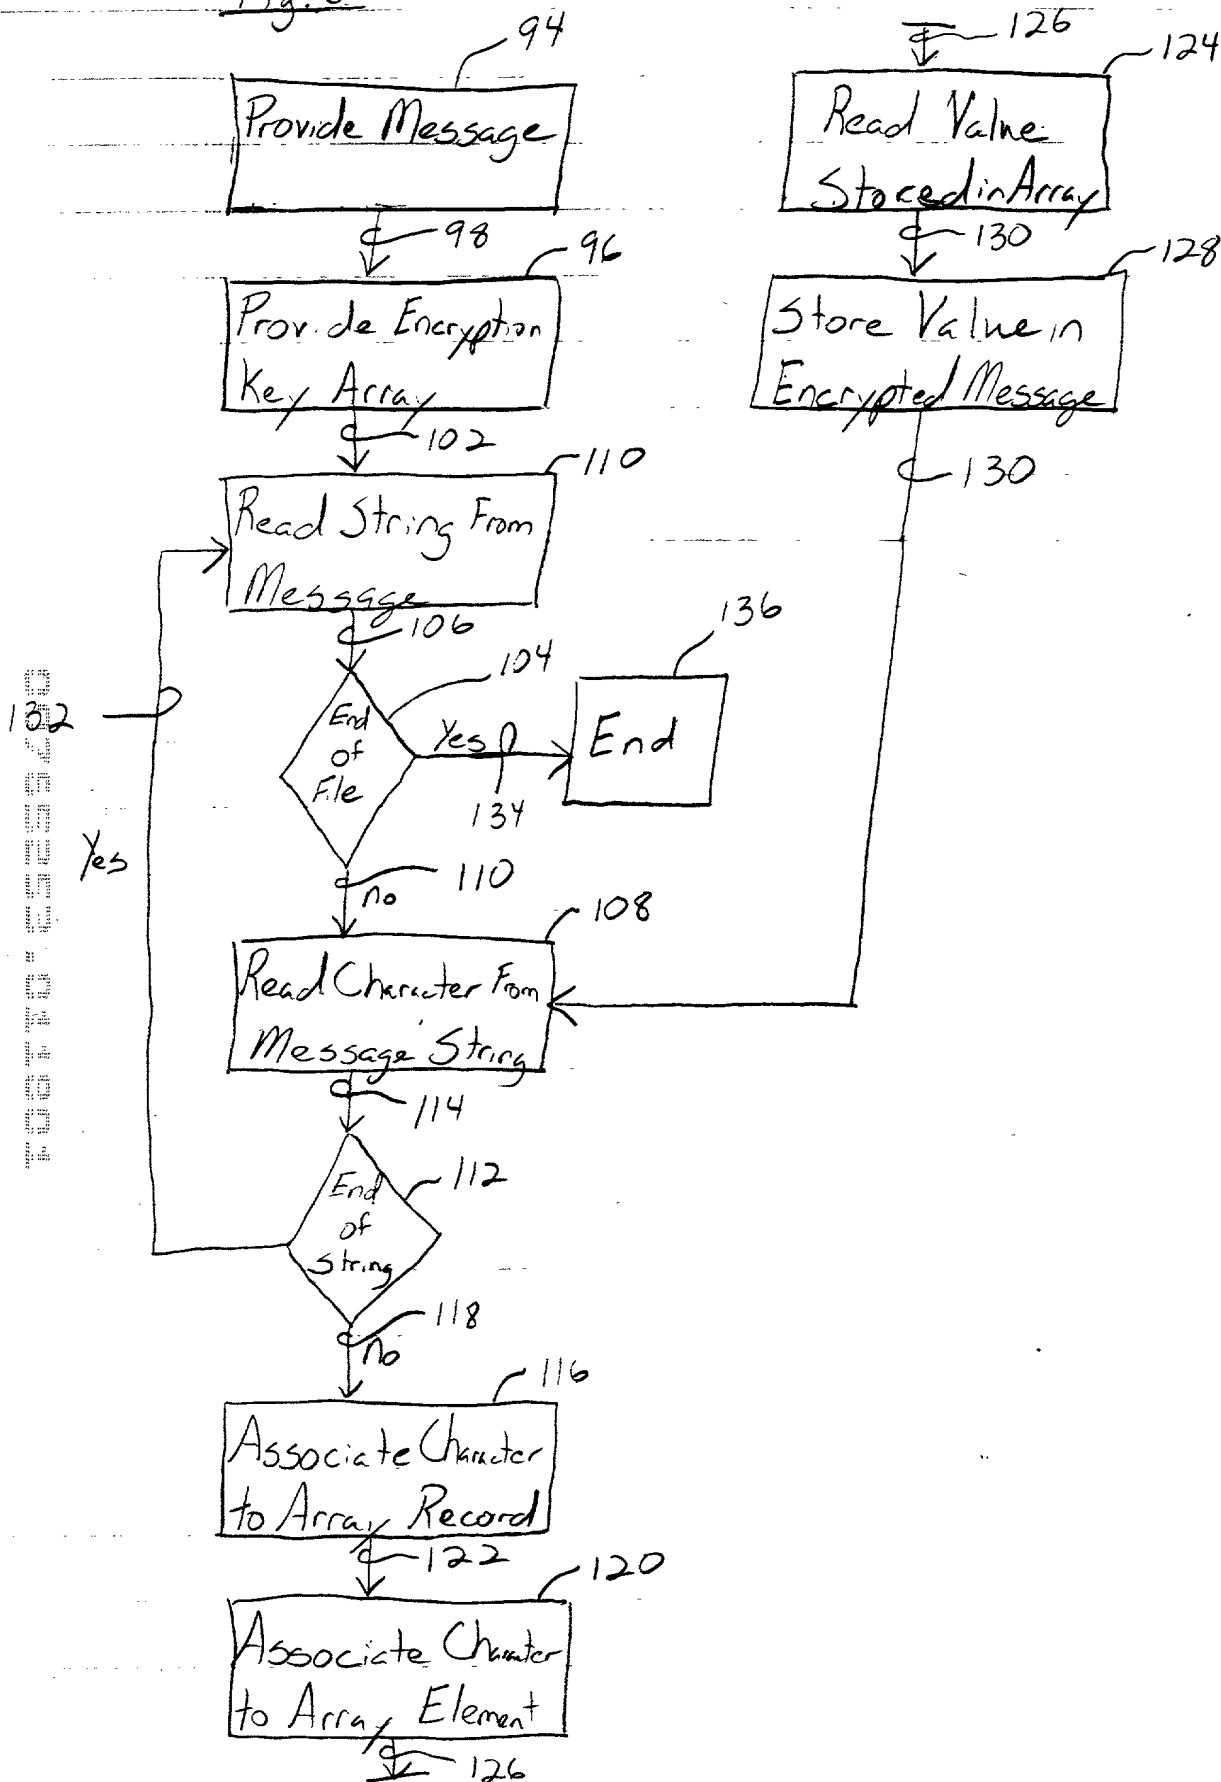 94
Provide Message
98
96
Provide Encryption
Key Array
102
110
Read String From
Message
106
104
End
of
File
Yes
134
136
End
110
no
108
Read Character From
Message String
114
112
End
of
String
132
Yes
118
no
116
Associate Character
to Array Record
122
120
Associate Character
to Array Element
126
126
124
Read Value
Stored in Array
130
128
Store Value in
Encrypted Message
130